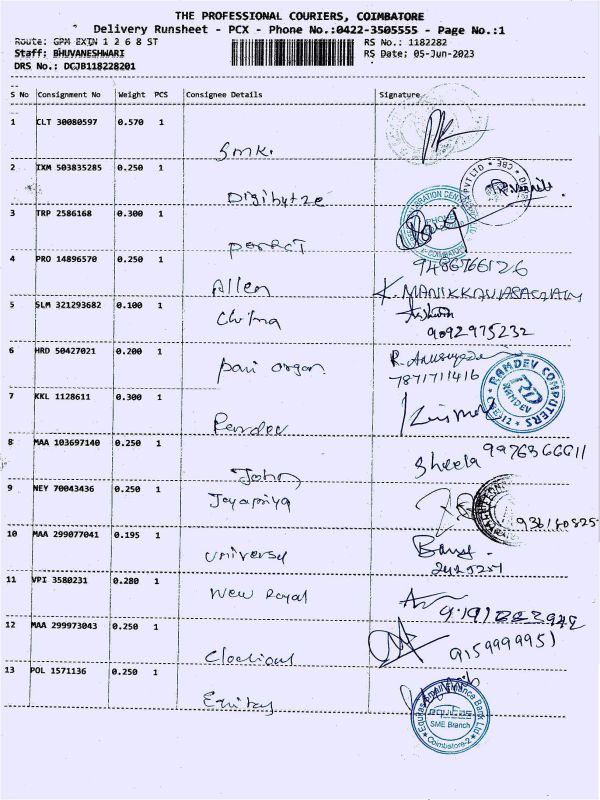 THE PROFESSIONAL COURIERS, COIMBATORE
Delivery Runsheet - PCX - Phone No.:0422-3505555 - Page No.:1
Route: GPM EXTN 1 2 6 8 ST RS No.: 1182282
Staff: BHUVANESHWARI RS Date: 05-Jun-2023
DRS No.: DCJB118228201
S No Consignment No Weight PCS Consignee Details Signature
1 CLT 30080597 0.570 1
SMK.
2 IXM 503835285 0.250 1
3 TRP 2586168 0.300 1
Perfect
4 PRO 14896570 0.250 1 9486766126
Allen
5 SLM 321293682 0.100 1
Chitra 9092975232
6 HRD 50427021 0.200 1
7871711416
7 KKL 1128611 0.300 1
RAMDEV COMPUTERS
RAMDEV
Ramdev
8 MAA 103697140 0.250 1 Sheela
John
9 NEY 70043436 0.250 1
Jayapriya
10 MAA 299077041 0.195 1
Universal
11 VPI 3580231 0.280 1
New Royal
12 MAA 299973043 0.250 1
9159999951
13 POL 1571136 0.250 1
Equitas
Equitas Small Finance Bank Ltd
SME Branch
Coimbatore-2